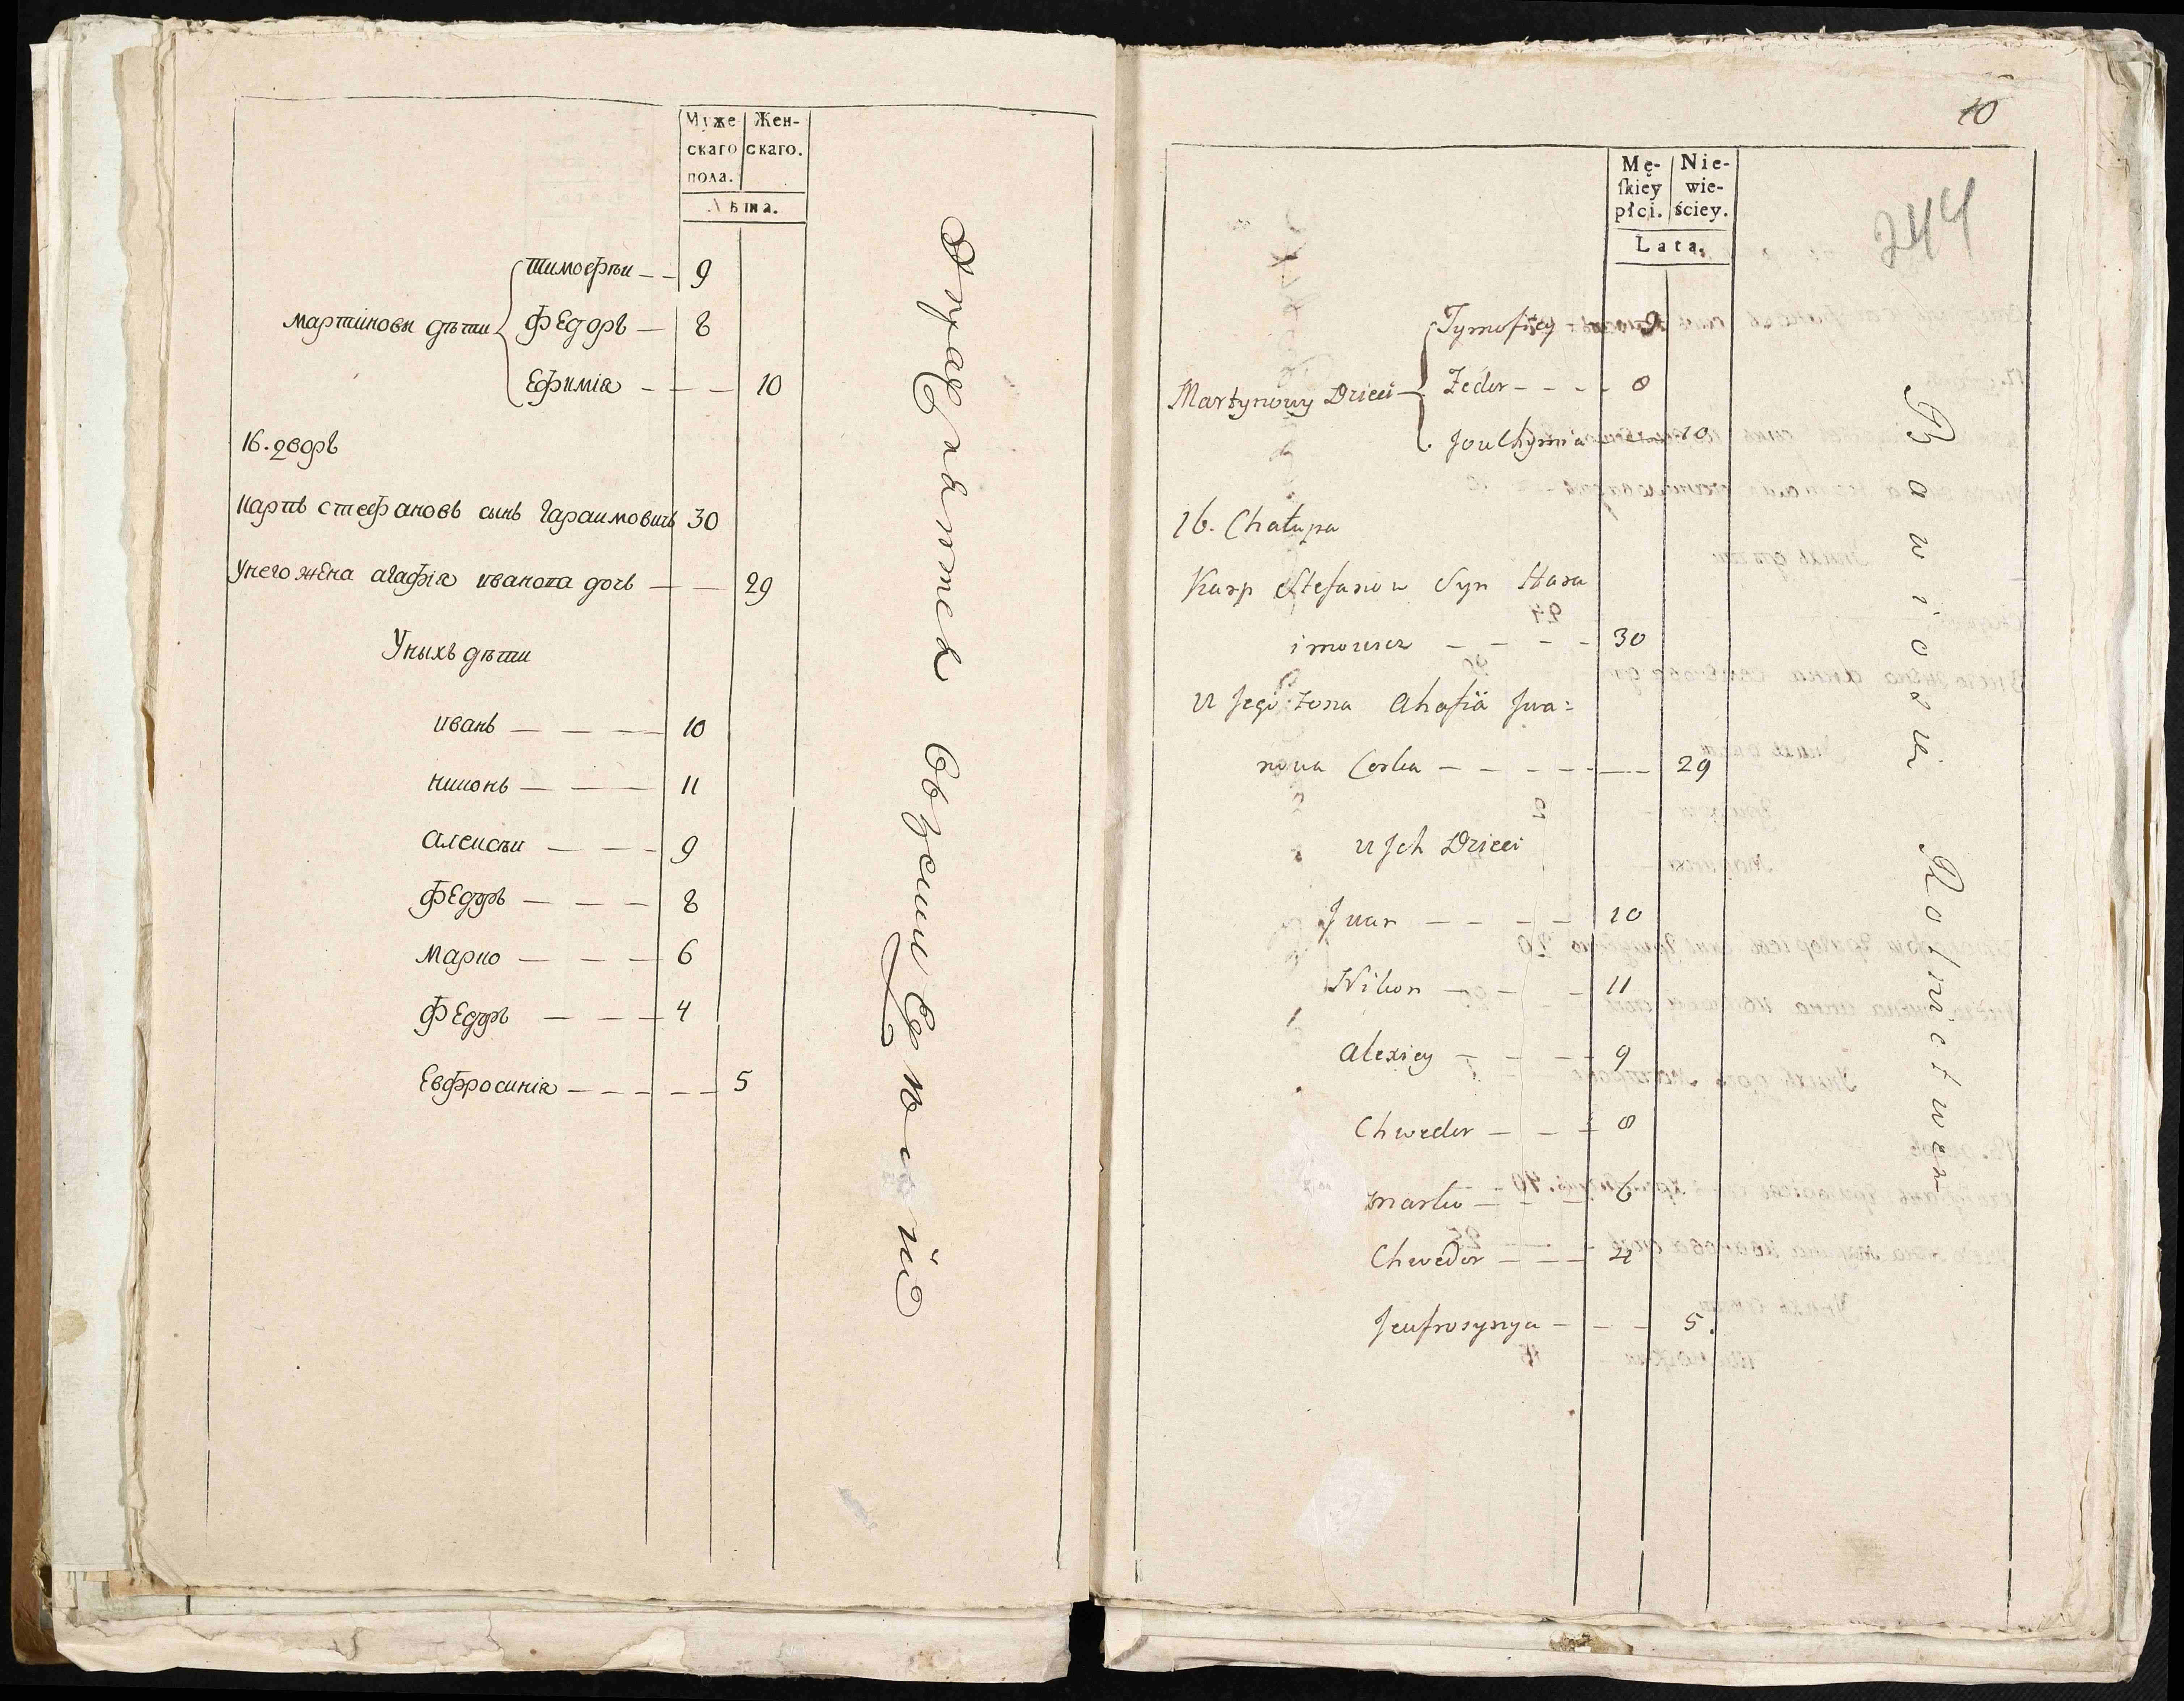 Муже
скаго
пола.
Жен-
скаго.
Лѣта.
Мартиновы дѣти
тимофѣи — — 9
Федоръ — 8
Ефимiя — — — 10
16. дворъ
Карпъ стефановъ сынъ гараимовичъ 30
Унего жена агафiя иванова дочь — — 29
Уныхъ дѣти
иванъ — — — — 10
никонъ — — — 11
алексѣи — — — 9
Федоръ — — — 8
Марко — — — 6
Федоръ — — — 4
Евфросинiя — — — — — 5
Упражняется въ
10
244
Mę-
ſkiey
płci.
Nie-
wie-
ściey.
Lata.
Martynowy Dzieci
Tymofiey - 9
Fedor - - - - 8
Jouchymia 10
16. Chałupa
Karp Stefanow Syn Hara
imowicz — — — — 30
U Jego Żona Ahafiä Jwa=
nowa Corka — — — — — 29
U Jch Dzieci
Jwan — — — — 10
Nikon — — — 11
Alexiey — — — 9
Chwedor — — — 8
Marko — — — 6
Chwedor — — — 4
Jeufrosynya — — — 5.
Bawiosie Rolnictwem